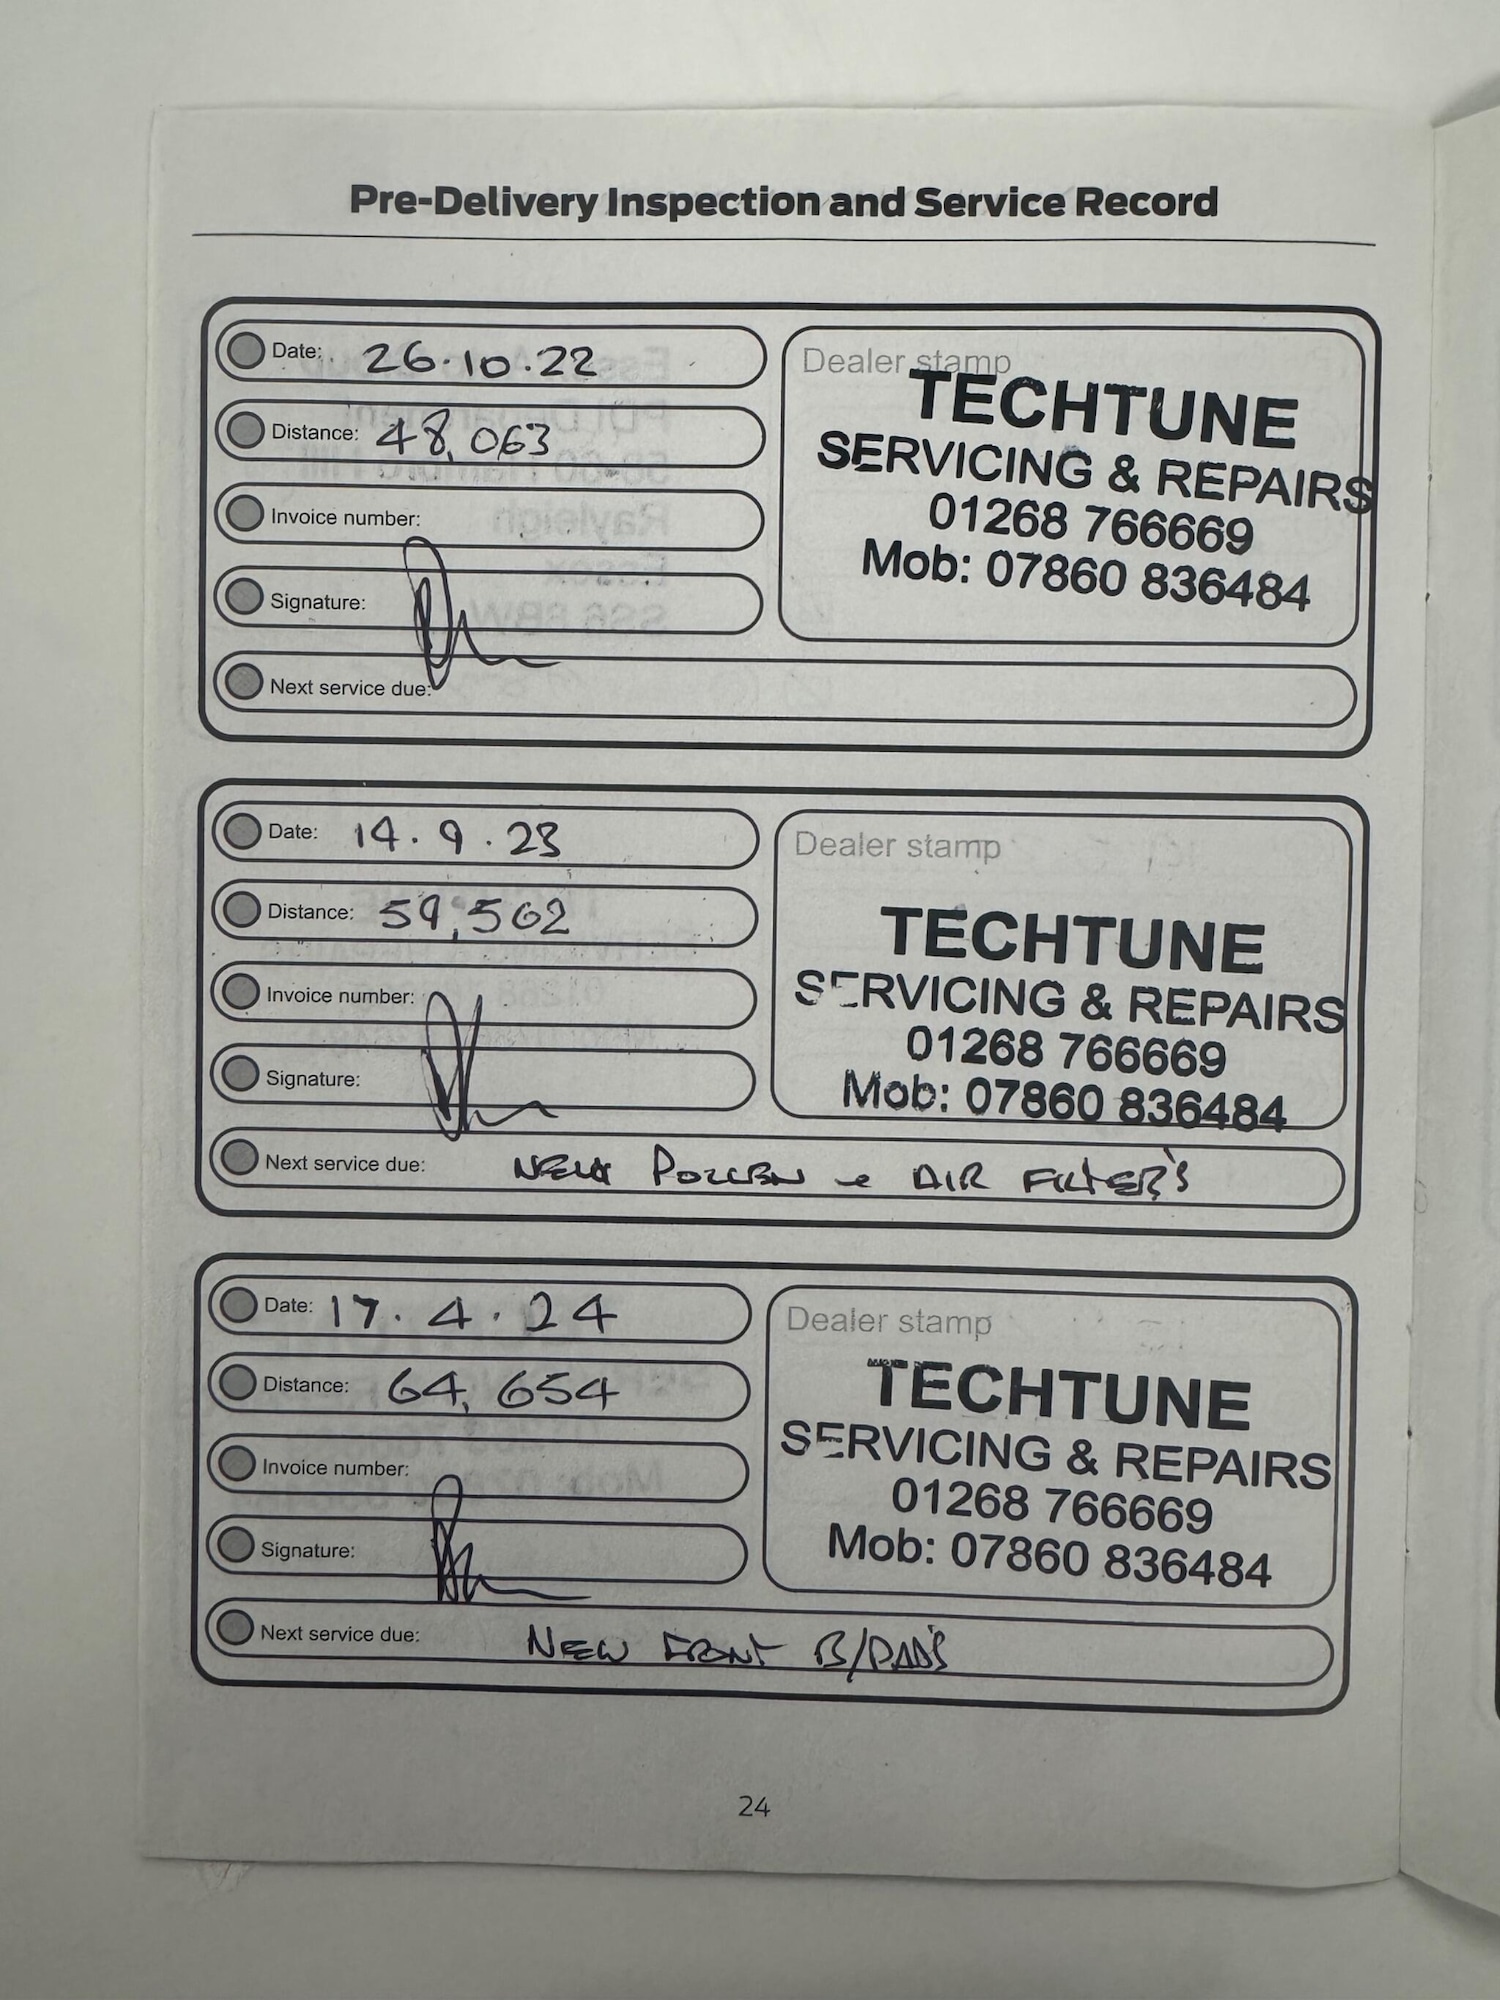 Pre-Delivery Inspection and Service Record
Date: 26.10.22
Distance: 48,063
Invoice number:
Signature:
Next service due:
Dealer stamp
TECHTUNE
SERVICING & REPAIRS
01268 766669
Mob: 07860 836484
Date: 14.9.23
Distance: 59,562
Invoice number:
Signature:
Next service due: NEW POLLEN & AIR FILTER'S
Dealer stamp
TECHTUNE
SERVICING & REPAIRS
01268 766669
Mob: 07860 836484
Date: 17.4.24
Distance: 64,654
Invoice number:
Signature:
Next service due: NEW FRONT B/PAD'S
Dealer stamp
TECHTUNE
SERVICING & REPAIRS
01268 766669
Mob: 07860 836484
24